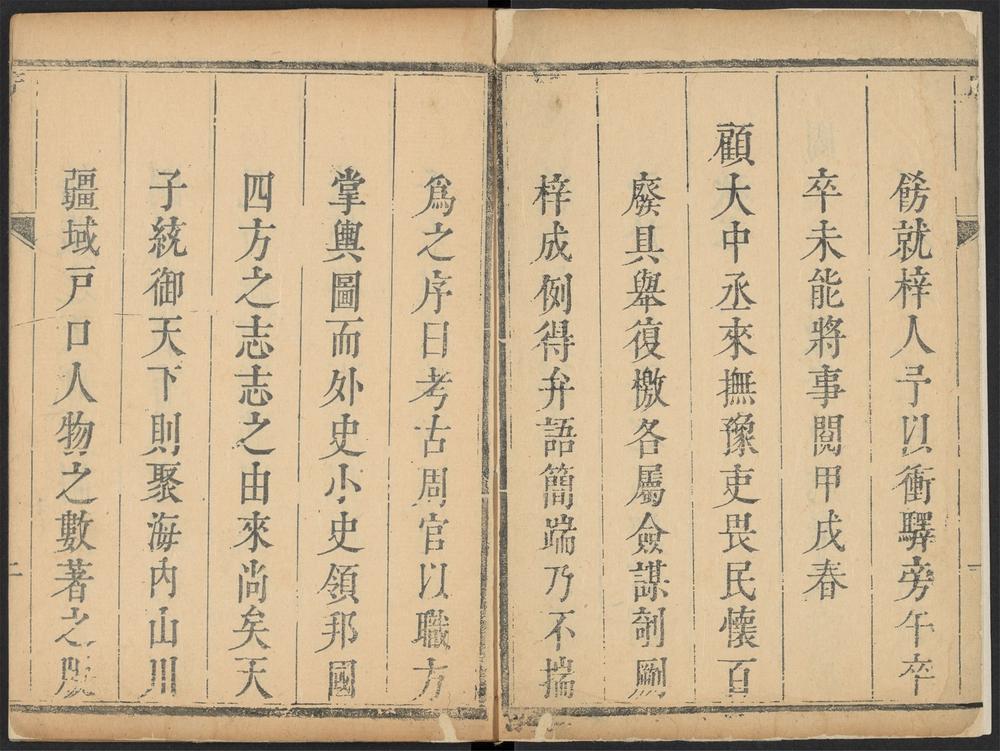 餝就梓人予以衝驛旁午卒
卒未能將事閱甲戌春
顧大中丞來撫豫吏畏民懷百
廢具舉復檄各屬僉謀剞劂
梓成例得弁語簡端乃不揣
爲之序曰考古周官以職方
掌輿圖而外史小史領邦國
四方之志志之由來尚矣天
子統御天下則聚海内山川
疆域戸口人物之數著之版